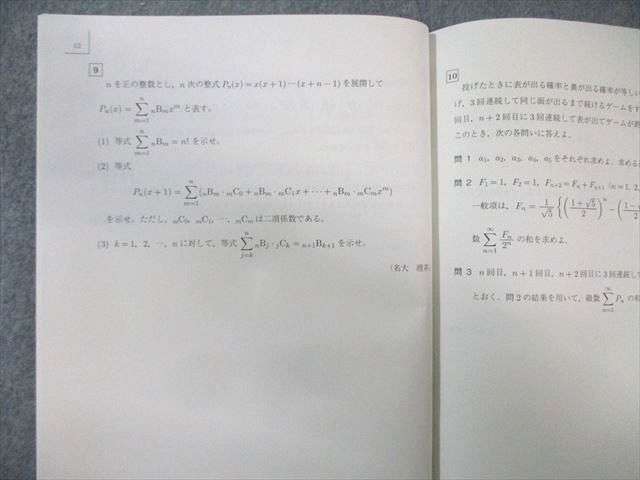 42
9
nを正の整数とし,n次の整式 Pn(x)=x(x+1)…(x+n-1) を展開して
Pn(x)=∑[m=1→n] nBm x^m と表す.
(1) 等式 ∑[m=1→n] nBm=n! を示せ.
(2) 等式
Pn(x+1)=∑[m=1→n](nBm・mC0+nBm・mC1x+…+nBm・mCmx^m)
を示せ.ただし,mC0, mC1, …, mCm は二項係数である.
(3) k=1, 2, …, n に対して,等式 ∑[j=k→n] nBj・jCk=n+1Bk+1 を示せ.
(名大 理系
10
投げたときに表が出る確率と裏が出る確率が等しい
げ,3回連続して同じ面が出るまで続けるゲームをす
回目,n+2回目に3回連続して表が出てゲームが終
このとき,次の各問いに答えよ.
問1 a1, a2, a3, a4, a5 をそれぞれ求めよ.求める
問2 F1=1, F2=1, Fn+2=Fn+Fn+1 (n=1, 2,
一般項は,Fn=1/√5{((1+√5)/2)^n-((1-√
数 ∑[n=1→∞] Fn/2^n の和を求めよ.
問3 n回目,n+1回目,n+2回目に3回連続して
とおく.問2の結果を用いて,級数 ∑[n=1→∞] Pn の和